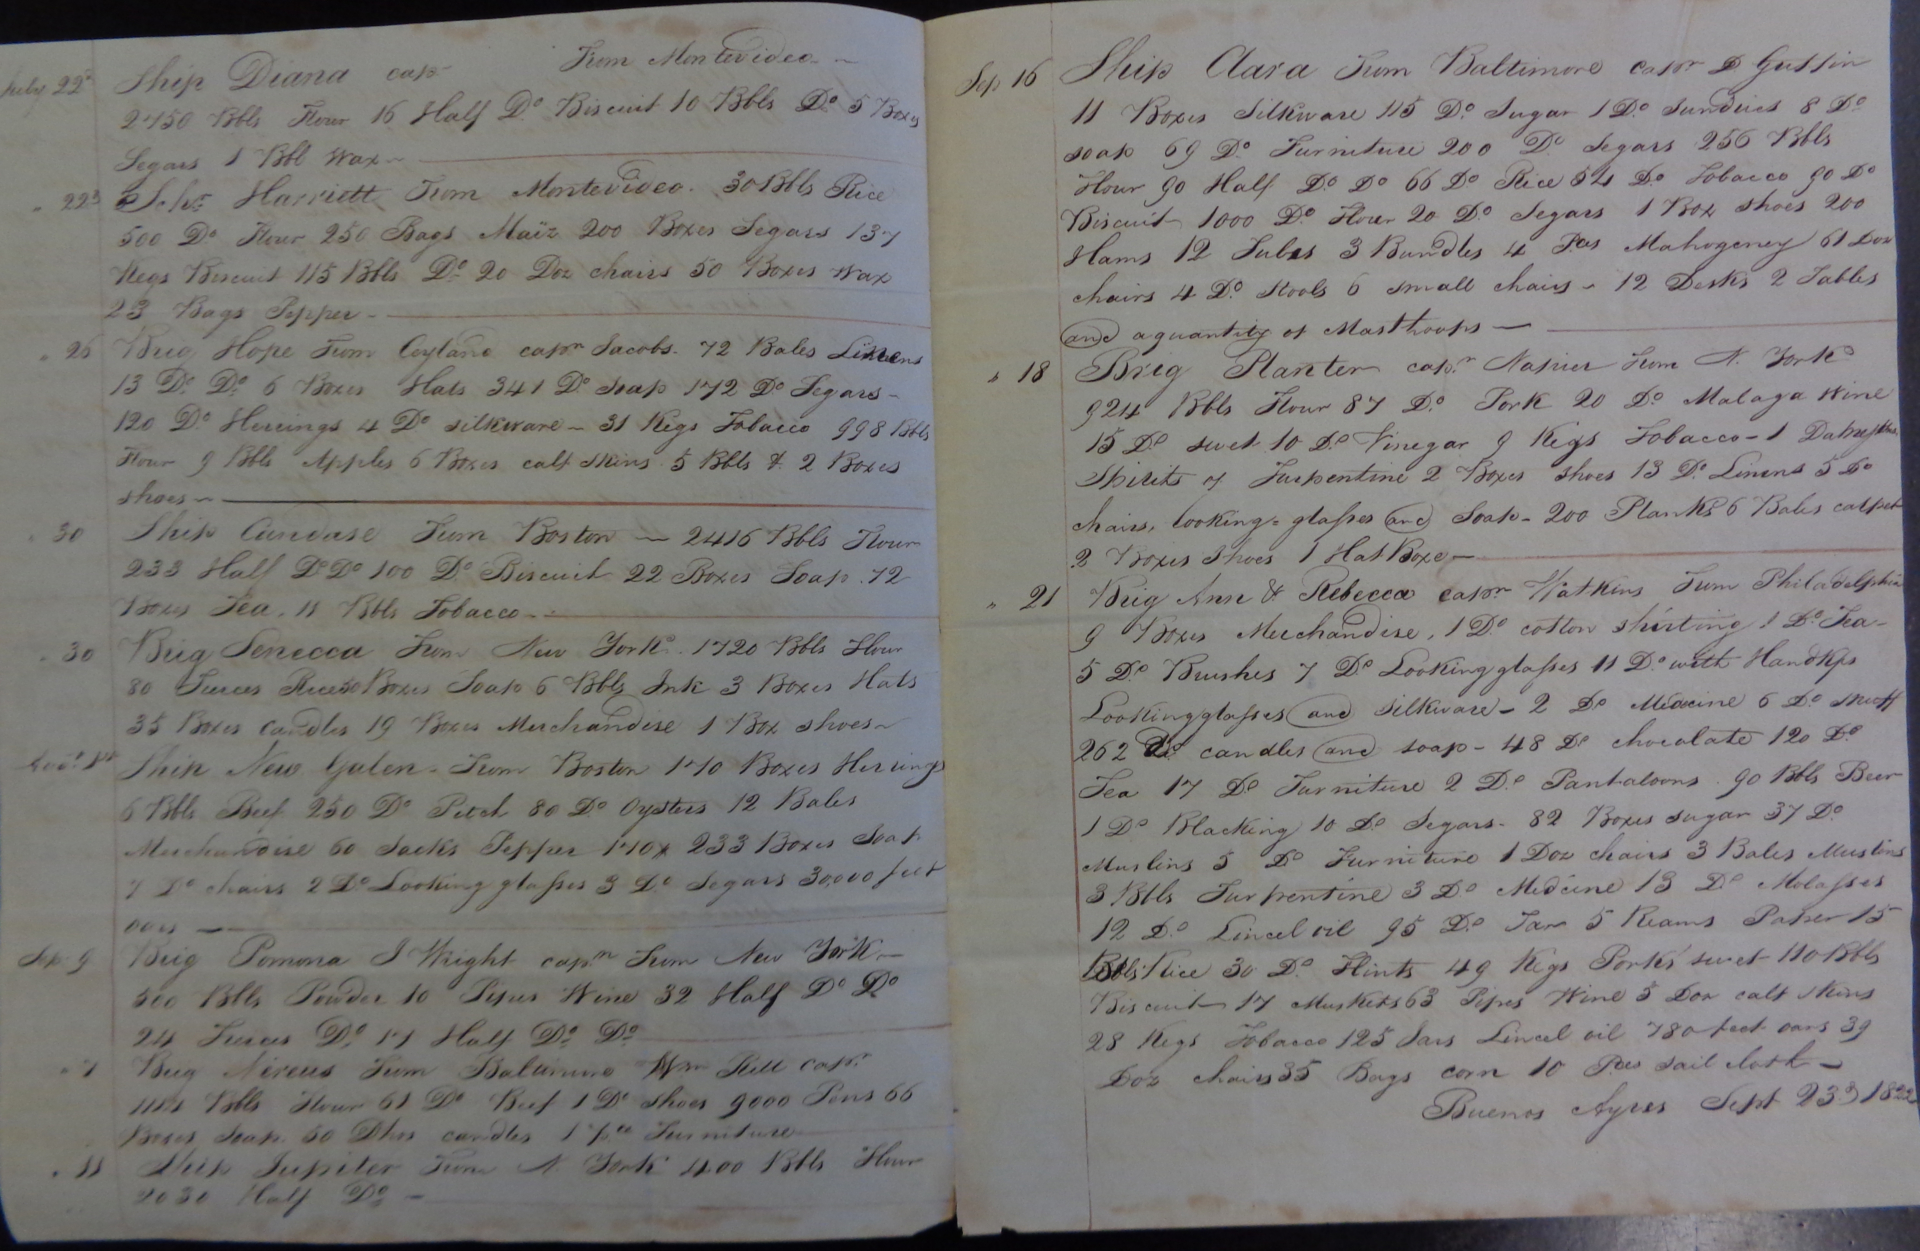 July 22d Ship Diana capn From Montevideo
2750 Bbls Flour 16 Half Do Biscuit 10 Bbls Do 5 Boxes
Segars 1 Bbl Wax
" 22d Schr Harriett From Montevideo. 30 Bbls Rice
500 Do Flour 250 Bags Maiz 200 Boxes Segars 137
Kegs Biscuit 115 Bbls Do 20 Doz chairs 50 Boxes Wax
23 Bags Pepper
" 26 Brig Hope From capn Jacobs. 72 Bales Linens
13 Do Do 6 Boxes Hats 341 Do Soap 172 Do Segars
120 Do Herrings 4 Do silkware 31 Kegs Tobacco 998 Bbls
Flour 9 Bbls Apples 6 Boxes calf skins 5 Bbls & 2 Boxes
shoes
" 30 Ship Candase From Boston 2416 Bbls Flour
233 Half Do Do 100 Do Biscuit 22 Boxes Soap. 72
Boxes Tea. 11 Bbls Tobacco
" 30 Brig Senecca From New York. 1720 Bbls Flour
80 Tierces Rice 50 Boxes Soap 6 Bbls Ink 3 Boxes Hats
35 Boxes candles 19 Boxes Merchandise 1 Box shoes
Ship New Galen From Boston 170 Boxes Herrings
6 Bbls Beef 250 Do Pitch 80 Do Oysters 12 Bales
Merchandise 60 Sacks Pepper 233 Boxes Soap
7 Do chairs 2 Do Looking glasses 3 Do Segars 30,000 feet
oars
Sep 9 Brig Pomona J Wright capn From New York
500 Bbls Powder 10 Pipes Wine 32 Half Do Do
24 Tierces Do 17 Half Do Do
" 7 Brig Nereus From Baltimore Wm capn
Bbls Flour 61 Do Beef 1 Do shoes 9000 66
Boxes Soap 50 candles 1 pce Furniture
" 11 Ship Jupiter From N York 400 Bbls Flour
2030 Half Do
Sep 16 Ship Clara From Baltimore capn D
11 Boxes Silkware 115 Do Sugar 1 Do Sundries 8 Do
soap 69 Do Furniture 200 Do segars 256 Bbls
Flour 90 Half Do Do 66 Do Rice 54 Do Tobacco 90 Do
Biscuit 1000 Do Flour 20 Do Segars 1 Box shoes 200
Hams 12 Tubs 3 Bundles 4 Pces Mahogeney 61 Doz
chairs 4 Do Stools 6 small chairs 12 Desks 2 Tables
and a quantity of Masthoops
" 18 Brig Planter capn Napier From N. York
924 Bbls Flour 87 Do Pork 20 Do Malaga Wine
15 Do suet 10 Do Vinegar 9 Kegs Tobacco 1
Spirits of Turpentine 2 Boxes shoes 13 Do Linens 5 Do
chairs, looking=glasses and Soap 200 Planks 6 Bales carpet
2 Boxes Shoes 1 Hat Boxe
" 21 Brig Ann & Rebecca capn Watkins From Philadelphia
9 Boxes Merchandise, 1 Do cotton shirting 1 Do Tea
5 Do Brushes 7 Do Looking glasses 11 Do with Handkfs
Lookingglasses and silkware 2 Do Medicine 6 Do snuff
262 Do candles and soap 48 Do chocolate 120 Do
Tea 17 Do Furniture 2 Do Pantaloons 90 Bbls Beer
1 Do Blacking 10 Do Segars 82 Boxes sugar 37 Do
Muslins 5 Do Furniture 1 Doz chairs 3 Bales Muslins
3 Bbls Turpentine 3 Do Medicine 13 Do Molasses
12 Do Lincel oil 95 Do Tar 5 Reams Paper 15
Bbls Rice 30 Do Flints 49 Kegs Porks suet 110 Bbls
Biscuit 17 Muskets 63 Pipes Wine 5 Doz calf skins
28 Kegs Tobacco 125 Jars Lincel oil 780 feet oars 39
Doz chairs 35 Bags corn 10 Pces sail cloth
Buenos Ayres Sept 23d 1822